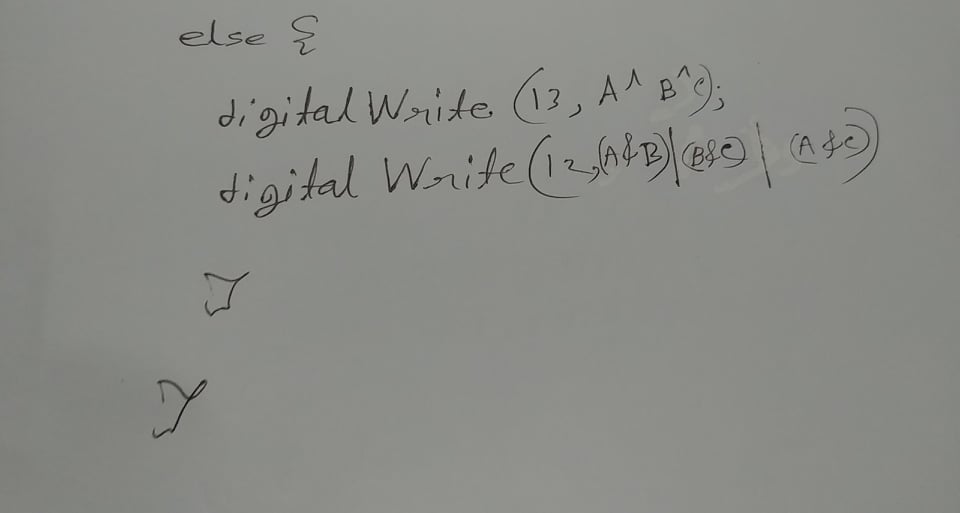 else {
digital Write (13, A ^ B ^ C);
digital Write (12,(A & B)|(B&C) | (A & C))
}
}